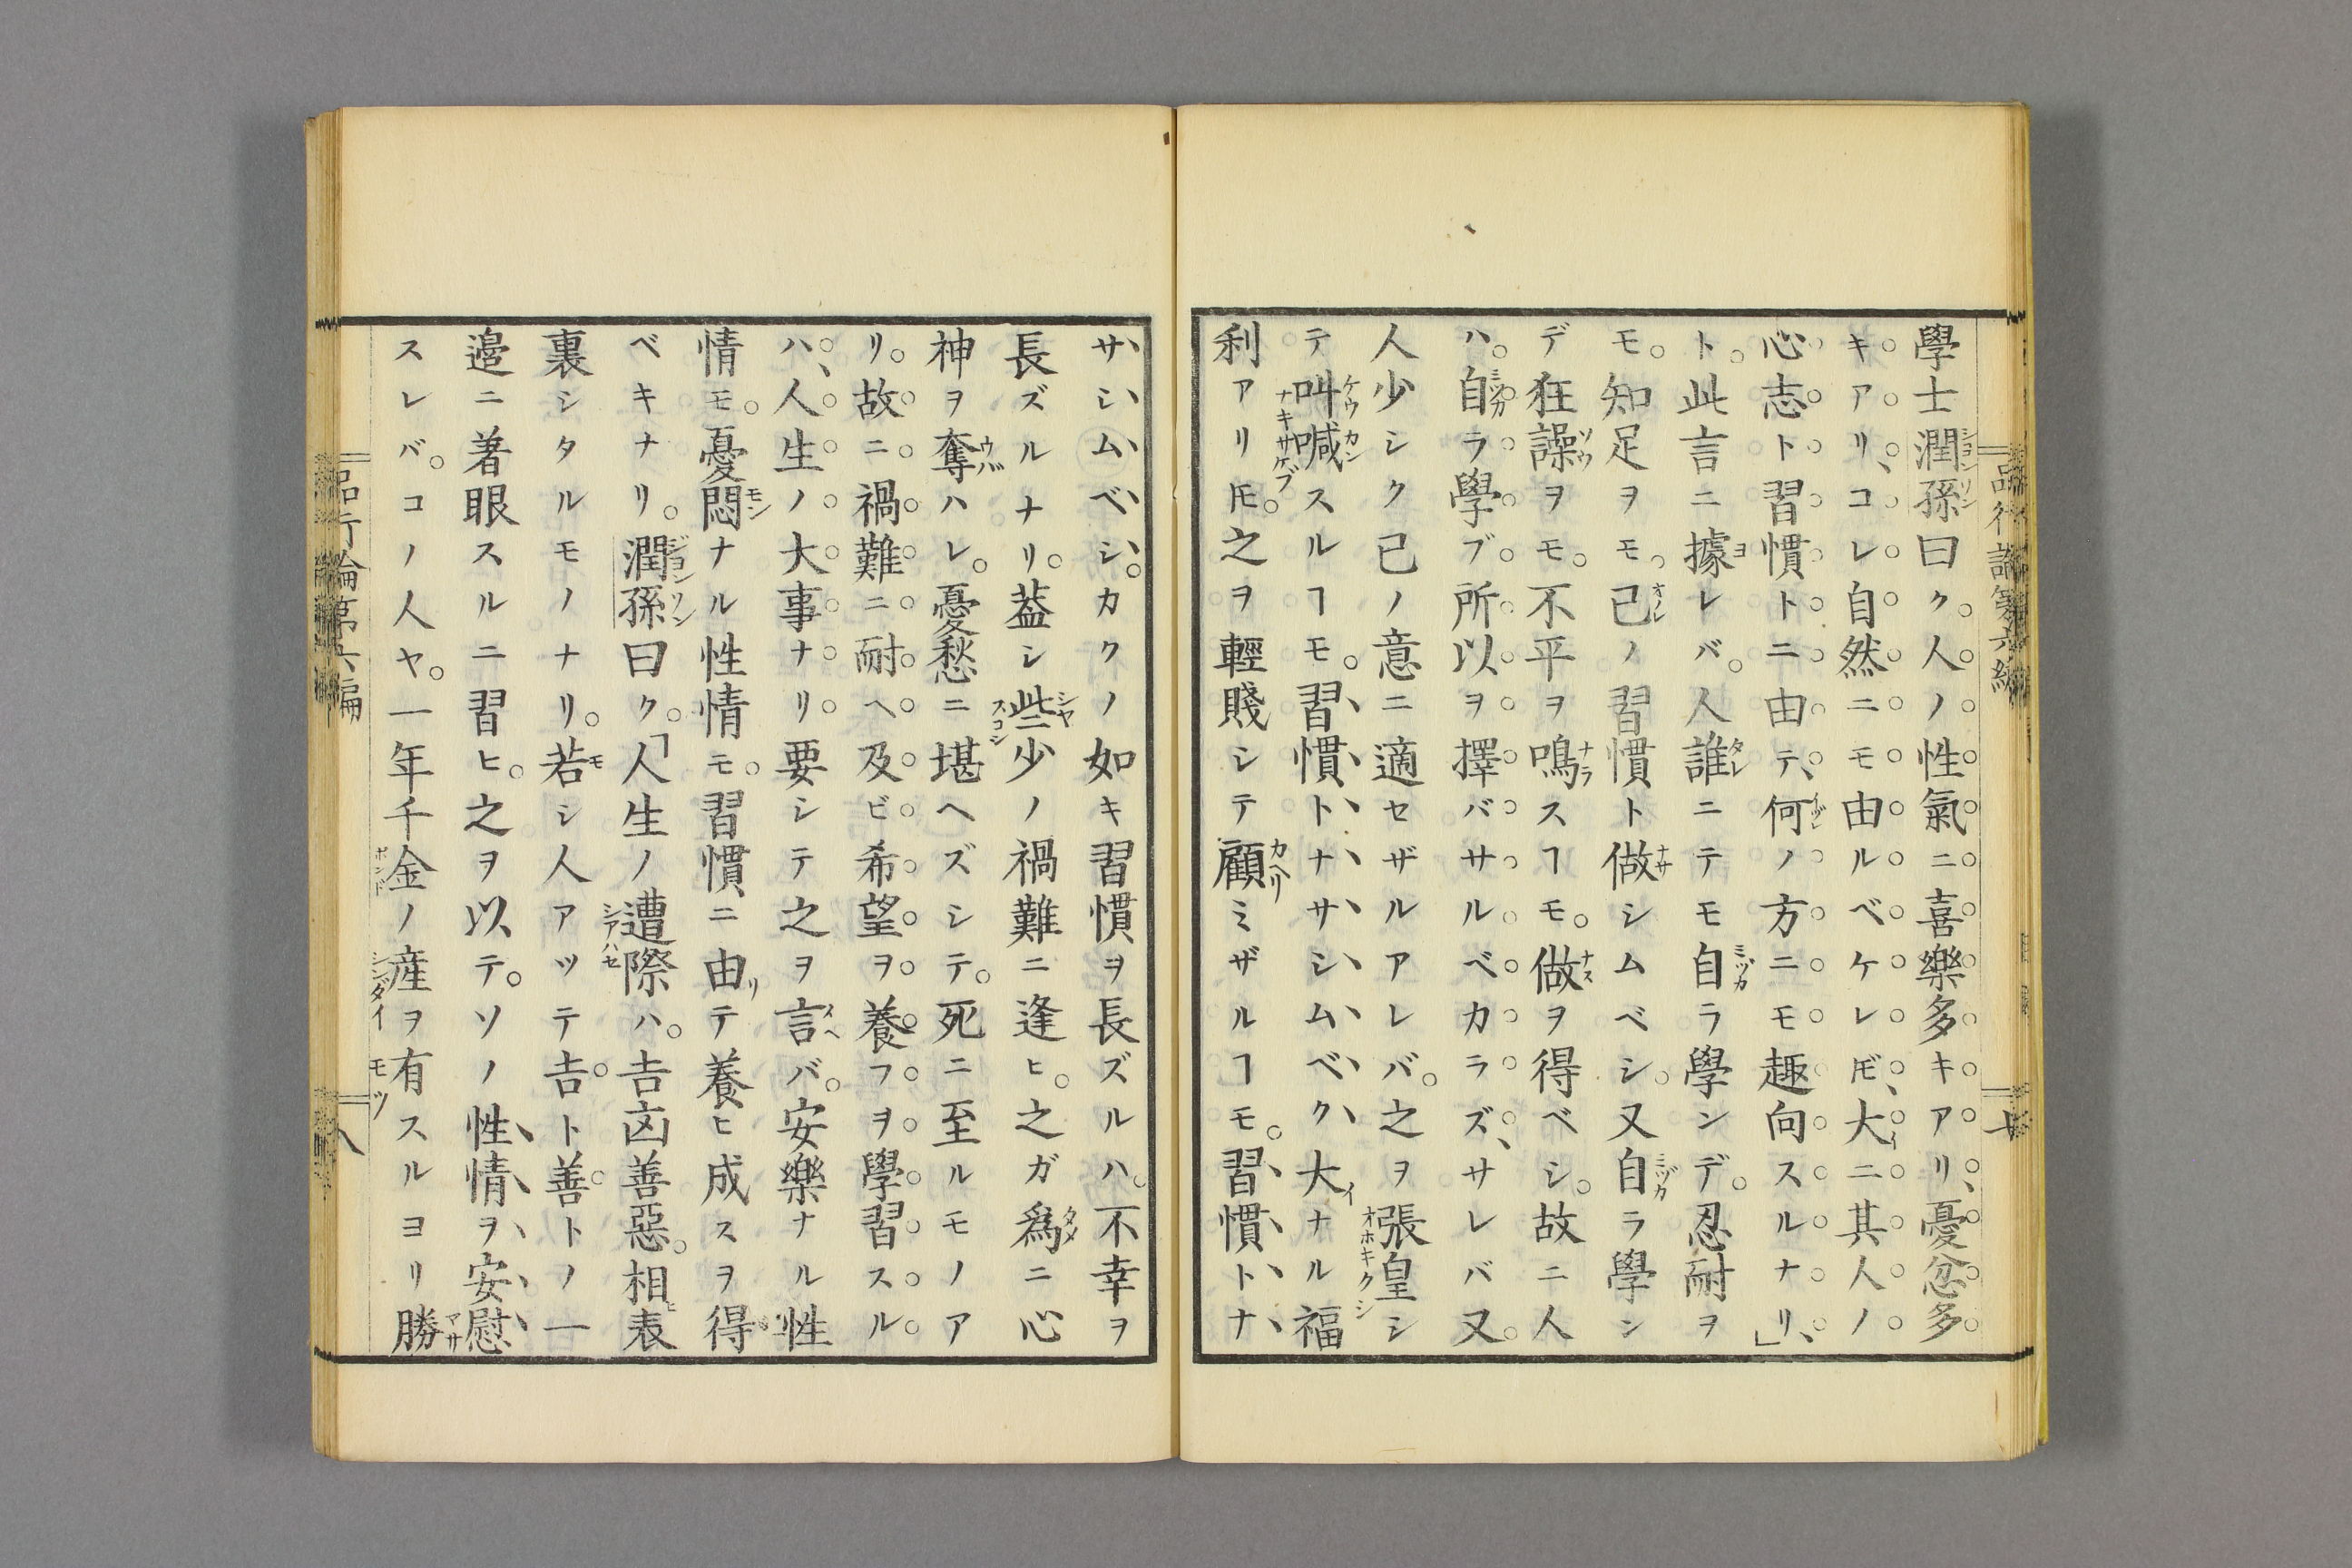 學士潤孫曰ク。人ノ性氣ニ喜樂多キアリ、憂忿多
キアリ、コレ自然ニモ由ルベケレ𪜈、大ニ其人ノ
心志ト習慣トニ由テ、何ノ方ニモ趣向スルナリ、」
ト。此言ニ據レバ。人誰ニテモ自ラ學ンデ。忍耐ヲ
モ。知足ヲモ。己ノ習慣ト做シムベシ。又自ラ學ン
デ狂譟ヲモ。不平ヲ鳴スヿモ。做ヲ得ベシ。故ニ人
ハ。自ラ學ブ所以ヲ擇バサルベカラズ、サレバ又
人少シク己ノ意ニ適セザルアレバ。之ヲ張皇シ
テ叫喊スルヿモ。習慣トナサシムベク、大ナル福
利アリ𪜈。之ヲ輕賤シテ顧ミザルヿモ。習慣トナ
品行論第六編
七
サシムベシ。カクノ如キ習慣ヲ長ズルハ。不幸ヲ
長ズルナリ。葢シ些少ノ禍難ニ逢ヒ。之ガ爲ニ心
神ヲ奪ハレ。憂愁ニ堪ヘズシテ。死ニ至ルモノア
リ。故ニ禍難ニ耐ヘ及ビ希望ヲ養フヲ學習スル
ハ、人生ノ大事ナリ要シテ之ヲ言バ。安樂ナル性
情モ。憂悶ナル性情モ。習慣ニ由テ養ヒ成スヲ得
ベキナリ。潤孫曰ク。「人生ノ遭際ハ。吉凶善惡。相表
裏シタルモノナリ。若シ人アツテ吉ト善トノ一
邉ニ著眼スルニ習ヒ。之ヲ以テ。ソノ性情ヲ安慰
スレバ。コノ人ヤ。一年千金ノ産ヲ有スルヨリ勝
品行論第六編
八